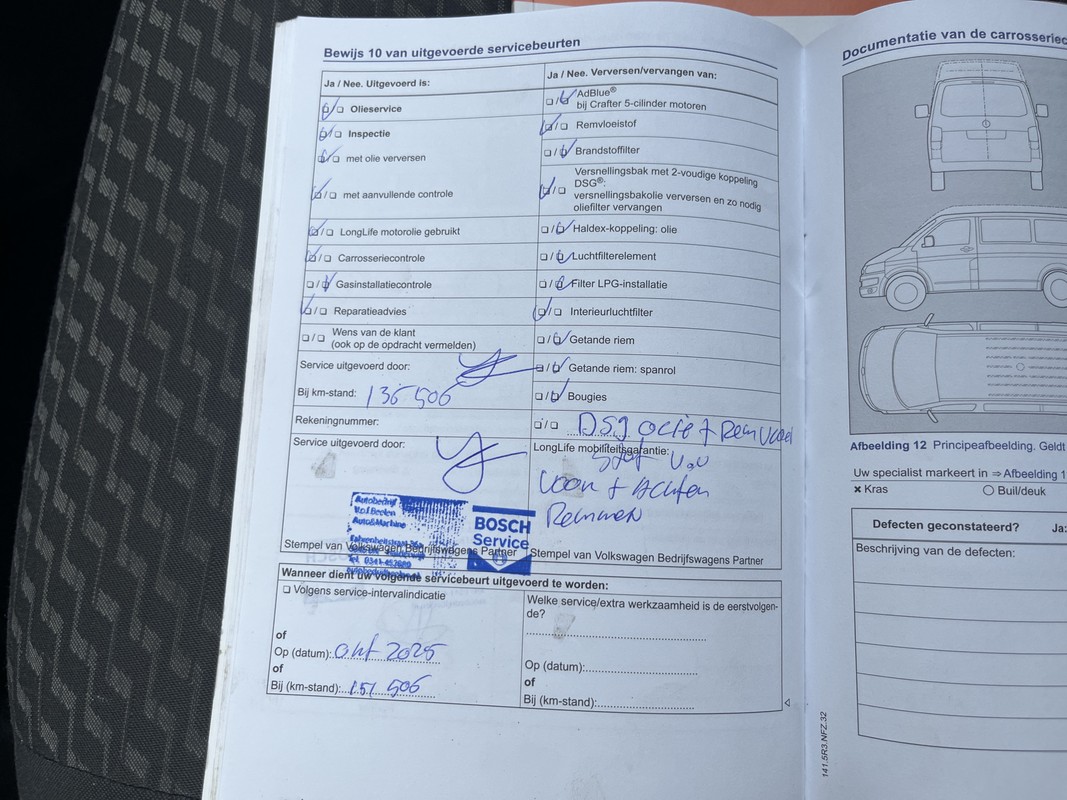 Bewijs 10 van uitgevoerde servicebeurten
Ja / Nee. Uitgevoerd is:
Olieservice
Inspectie
met olie verversen
met aanvullende controle
LongLife motorolie gebruikt
Carrosseriecontrole
Gasinstallatiecontrole
Reparatieadvies
Wens van de klant
(ook op de opdracht vermelden)
Service uitgevoerd door:
Bij km-stand: 136 506
Rekeningnummer:
Service uitgevoerd door:
Autobedrijf
V.o.f. Beelen
Auto&Machine
BOSCH
Service
Stempel van Volkswagen Bedrijfswagens Partner
Ja / Nee. Verversen/vervangen van:
AdBlue®
bij Crafter 5-cilinder motoren
Remvloeistof
Brandstoffilter
Versnellingsbak met 2-voudige koppeling
DSG®:
versnellingsbakolie verversen en zo nodig
oliefilter vervangen
Haldex-koppeling: olie
Luchtfilterelement
Filter LPG-installatie
Interieurluchtfilter
Getande riem
Getande riem: spanrol
Bougies
DSG olie + Remvloei
LongLife mobiliteitsgarantie:
stof V.v
Voor + Achter
Remmen
Stempel van Volkswagen Bedrijfswagens Partner
Wanneer dient uw volgende servicebeurt uitgevoerd te worden:
Volgens service-intervalindicatie
of
Op (datum): okt 2025
of
Bij (km-stand): 151 506
Welke service/extra werkzaamheid is de eerstvolgen-
de?
Op (datum):
of
Bij (km-stand):
141.5R3.NFZ.32
Documentatie van de carrosseriec
Afbeelding 12 Principeafbeelding. Geldt
Uw specialist markeert in ⇒ Afbeelding 1
Kras
Buil/deuk
Defecten geconstateerd? Ja:
Beschrijving van de defecten: